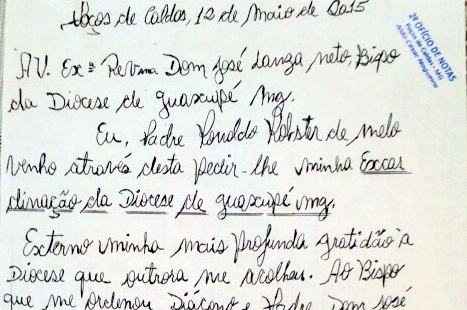 Poços de Caldas, 12 de Maio de 2015
2º OFÍCIO DE NOTAS
Poços de Caldas - MG
AV. Exª Revma Dom José Lanza neto, Bispo
da Diocese de guaxupé mg.
Eu, Padre Ronaldo Robster de melo
venho através desta pedir-lhe minha Excar
dinação da Diocese de guaxupé mg.
Externo minha mais Profunda gratidão à
Diocese que outrora me acolheu. Ao Bispo
que me ordenou Diácono e Padre Dom José